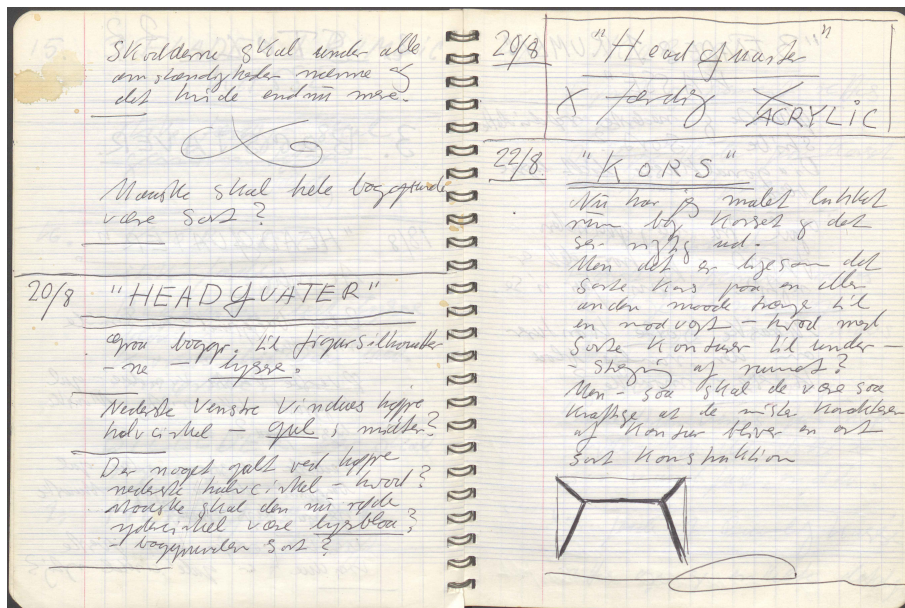 Skodderne skal under alle
omstændigheder nærme sig
det hvide endnu mere.
Maaske skal hele baggrunden
være sort?
20/8 "HEADQUATER"
graa baggr. til figursilhouetter
-ne - lysere.
Nederste venstre vindues højre
halvcirkel - gul i midten?
Der noget galt ved højre
nederste halvcirkel - hvad?
Maaske skal den nu røde
ydercirkel være lysblaa?
- baggrunden sort?
20/8 "Headquater"
X færdig ACRYLIC
22/8. "KORS"
Nu har jeg malet lukket
rum bag korset og det
ser rigtig ud.
Men det er ligesom det
sorte kors paa en eller
anden maade trænge til
en modvægt - hvad med
sorte konturer til under-
- stregning af rummet?
Men - saa skal de være saa
kraftige at de mister karakteren
af kontur bliver en art
sort konstruktion